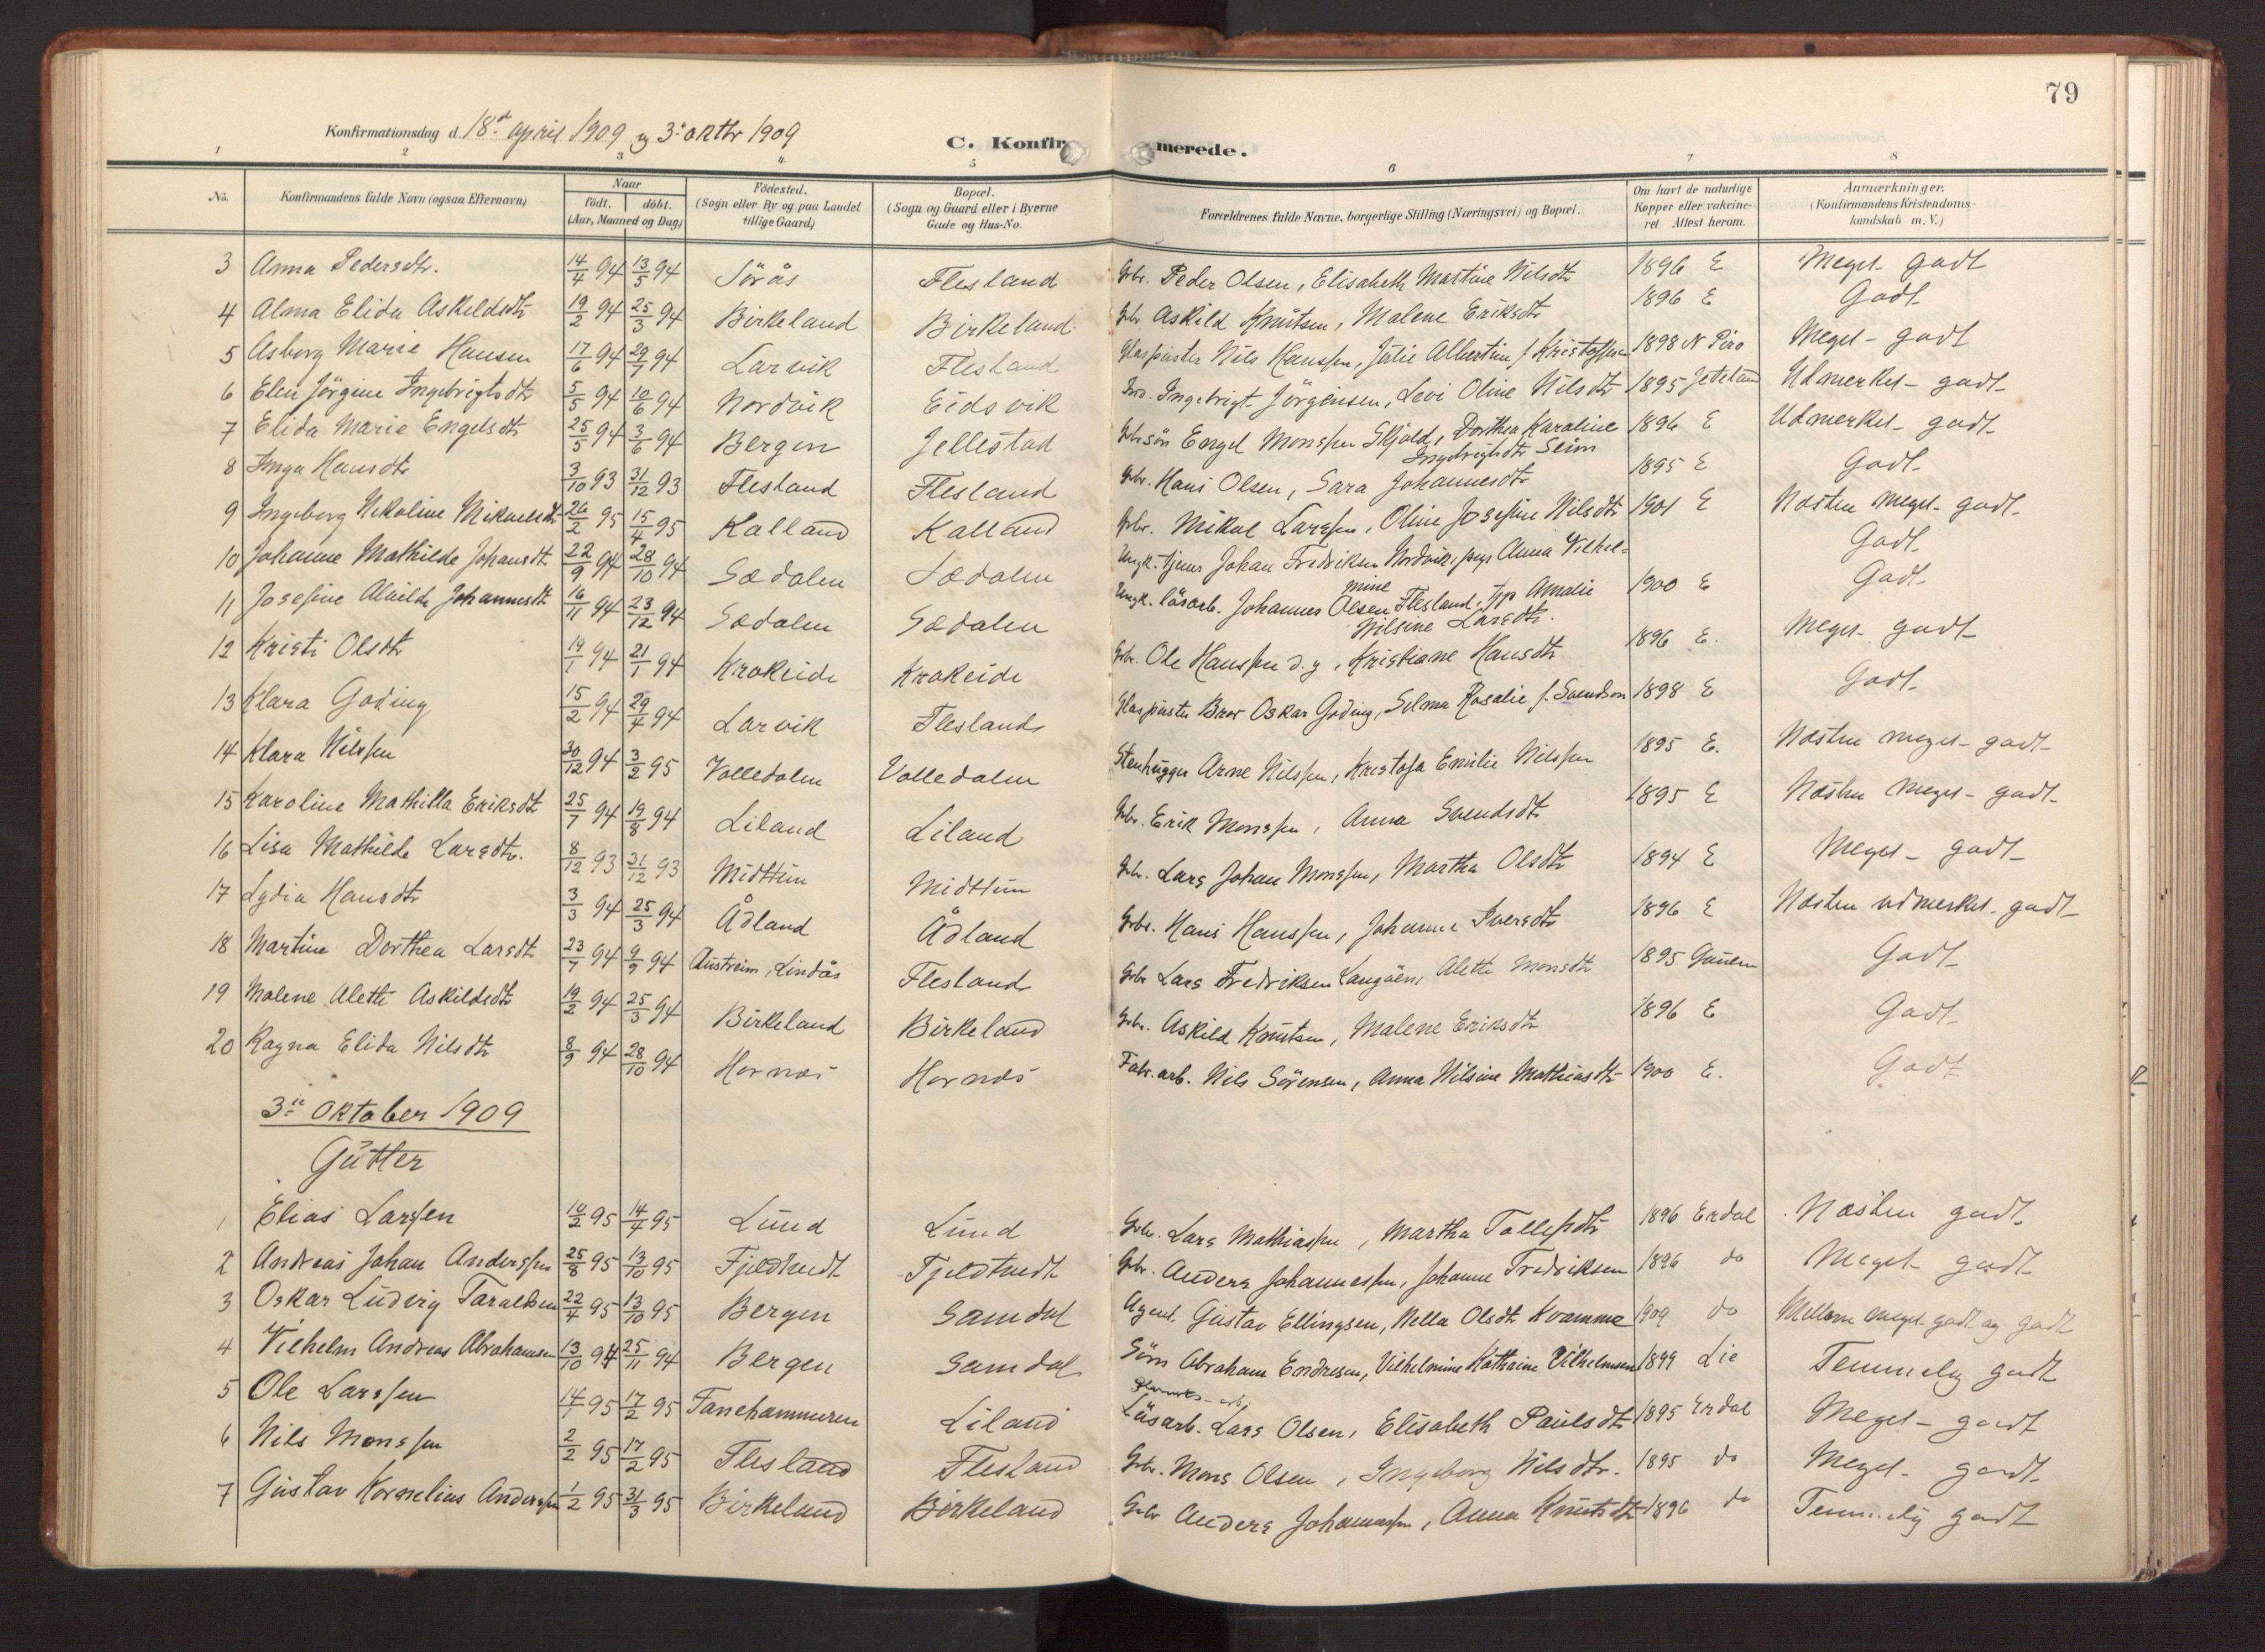 79
Konfirmationsdag d. 18de april 1909 og 3. oktbr 1909
C. Konfirmerede.
1 2 3 4. 5 6 7 8
No. Konfirmandens fulde Navn (ogsaa Efternavn) Naar födt. döbt. (Aar, Maaned og Dag) Födested. (Sogn eller By og paa Landet tillige Gaard) Bopæl. (Sogn og Gaard eller i Byerne Gade og Hus-No. Forældrenes fulde Navne, borgerlige Stilling (Næringsvei) og Bopæl. Om havt de naturlige Kopper eller vakcineret. Attest herom. Anmærkninger. (Konfirmandens Kristendomskundskab m. V.)
3 Anna Pedersdtr. 14/4 94 13/5 94 Sörås Flesland Gbr. Peder Olsen, Elisabeth Martine Nilsdtr 1896 E Meget godt
4 Alma Elida Askeldsdtr 19/2 94 25/3 94 Birkeland Birkeland Gbr. Askild Knutsen, Malene Eriksdtr 1896 E Godt
5 Asborg Marie Hansen 17/6 94 29/7 94 Larvik Flesland Glaspuster Nils Hanssen, Julie Albertine f. Kristoffersen 1898 N Meget godt
6 Elen Jörgine Ingebrigtsdtr 5/5 94 10/6 94 Nordvik Eidsvik Ingebrigt Jörgensen, Levi Oline Nilsdtr 1895 Udmerket godt
7 Elida Marie Engelsdtr 25/5 94 3/6 94 Bergen Jellestad Gbrsön Engel Monssen Skjold, Dorthea Karoline Ingebrigtsdtr Seim 1896 E Udmerket godt
8 Inga Hansdtr 3/10 93 31/12 93 Flesland Flesland Gbr. Hans Olsen, Sara Johannesdtr 1895 E Godt
9 Ingeborg Nikoline Mikalsdtr 26/2 95 15/4 95 Kalland Kalland Gbr. Mikal Larssen, Oline Josefine Nilsdtr 1901 E Næsten meget godt
10 Johanne Mathilde Johansdtr 22/9 94 28/10 94 Sædalen Sædalen Ungk. tjener Johan Fredriksen Nordvik, pige Anna Vilhelmine Godt
11 Josefine Alvilde Johannesdtr 16/11 94 23/12 94 Sædalen Sædalen Ungk. lösarb. Johannes Olsen Flesland, Amalie Nilsine Larsdtr. 1900 E Godt
12 Kristi Olsdtr 19/1 94 21/1 94 Krokeide Krokeide Gbr. Ole Hanssen d.y., Kristiane Hansdtr 1896 E. Meget godt
13 Klara Goding 15/2 94 29/4 94 Larvik Flesland Glaspuster Bror Oskar Goding, Selma Rosalie f. Svendson 1898 E Godt
14 Klara Nilssen 30/12 94 3/2 95 Volledalen Volledalen Stenhugger Arne Nilssen, Kristofa Emilie Nilssen 1895 E. Næsten meget godt
15 Karoline Mathilla Eriksdtr 25/7 94 19/8 94 Liland Liland Gbr. Erik Monssen, Anna Svendsdtr 1895 E Næsten meget godt
16 Lisa Mathilde Larsdtr. 8/12 93 31/12 93 Midttun Midttun Gbr. Lars Johan Monssen, Martha Olsdtr 1894 E Meget godt
17 Lydia Hansdtr 3/3 94 25/3 94 Ådland Ådland Gbr. Hans Hanssen, Johanne Iversdtr 1896 E Næsten udmerket godt
18 Martine Dorthea Larsdtr 23/7 94 9/9 94 Austreim, Lindås Flesland Gbr Lars Fredriksen Langöen, Alette Monsdtr 1895 Godt
19 Malene Alette Askildsdtr 19/2 94 25/3 94 Birkeland Birkeland Gbr. Askild Knutsen, Malene Eriksdtr 1896 E Godt
20 Ragna Elida Nilsdtr 8/9 94 28/10 94 Hornæs Hornæs Fabr. arb. Nils Sörensen, Anna Nilsine Mathiasdtr 1900 E. Godt
3die Oktober 1909
Gutter
1 Elias Larssen 10/2 95 14/4 95 Lund Lund Gbr. Lars Mathiassen, Martha Tollefsdtr 1896 Erdal Næsten godt
2 Andreas Johan Anderssen 25/8 95 13/10 95 Fjeldtvedt Fjeldtvedt Gbr. Anders Johannessen, Johanne Fredriksen 1896 do Meget godt
3 Oskar Ludvig Taraldsen 22/4 95 13/10 95 Bergen Samdal Agent Gustav Ellingsen, Nella Olsdtr Kvamme 1909 do Mellem meget godt og godt
4 Vilhelm Andreas Abrahamsen 13/10 94 25/11 94 Bergen Samdal Abraham Endresen, Vilhelmine Kathrine Vilhelmsen 1899 Lie Temmelig godt
5 Ole Larssen 14/1 95 17/2 95 Fanehammeren Liland Lösarb. Lars Olsen, Elisabeth Paulsdtr 1895 Erdal Meget godt
6 Nils Monssen 2/2 95 17/2 95 Flesland Flesland Gbr. Mons Olsen, Ingeborg Nilsdtr. 1895 do Meget godt
7 Gustav Kornelius Anderssen 1/2 95 31/3 95 Birkeland Birkeland Gbr Anders Johannessen, Anna Knutsdtr 1896 do Temmelig godt